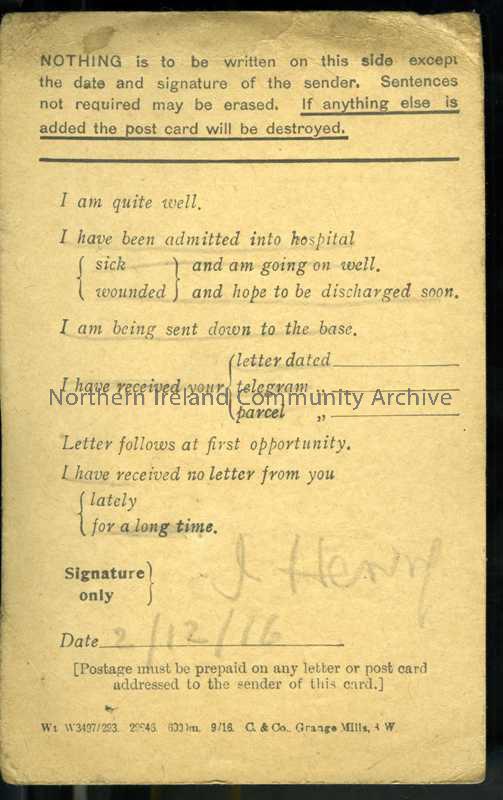 NOTHING is to be written on this side except
the date and signature of the sender. Sentences
not required may be erased. If anything else is
added the post card will be destroyed.
I am quite well.
I have been admitted into hospital
sick
wounded
and am going on well.
and hope to be discharged soon.
I am being sent down to the base.
I have received your
letter dated
telegram „
parcel „
Northern Ireland Community Archive
Letter follows at first opportunity.
I have received no letter from you
lately
for a long time.
Signature
only
J Henry
Date 2/12/16
[Postage must be prepaid on any letter or post card
addressed to the sender of this card.]
Wt. W3497/293. 9/16. C. & Co., Grange Mills, S.W.